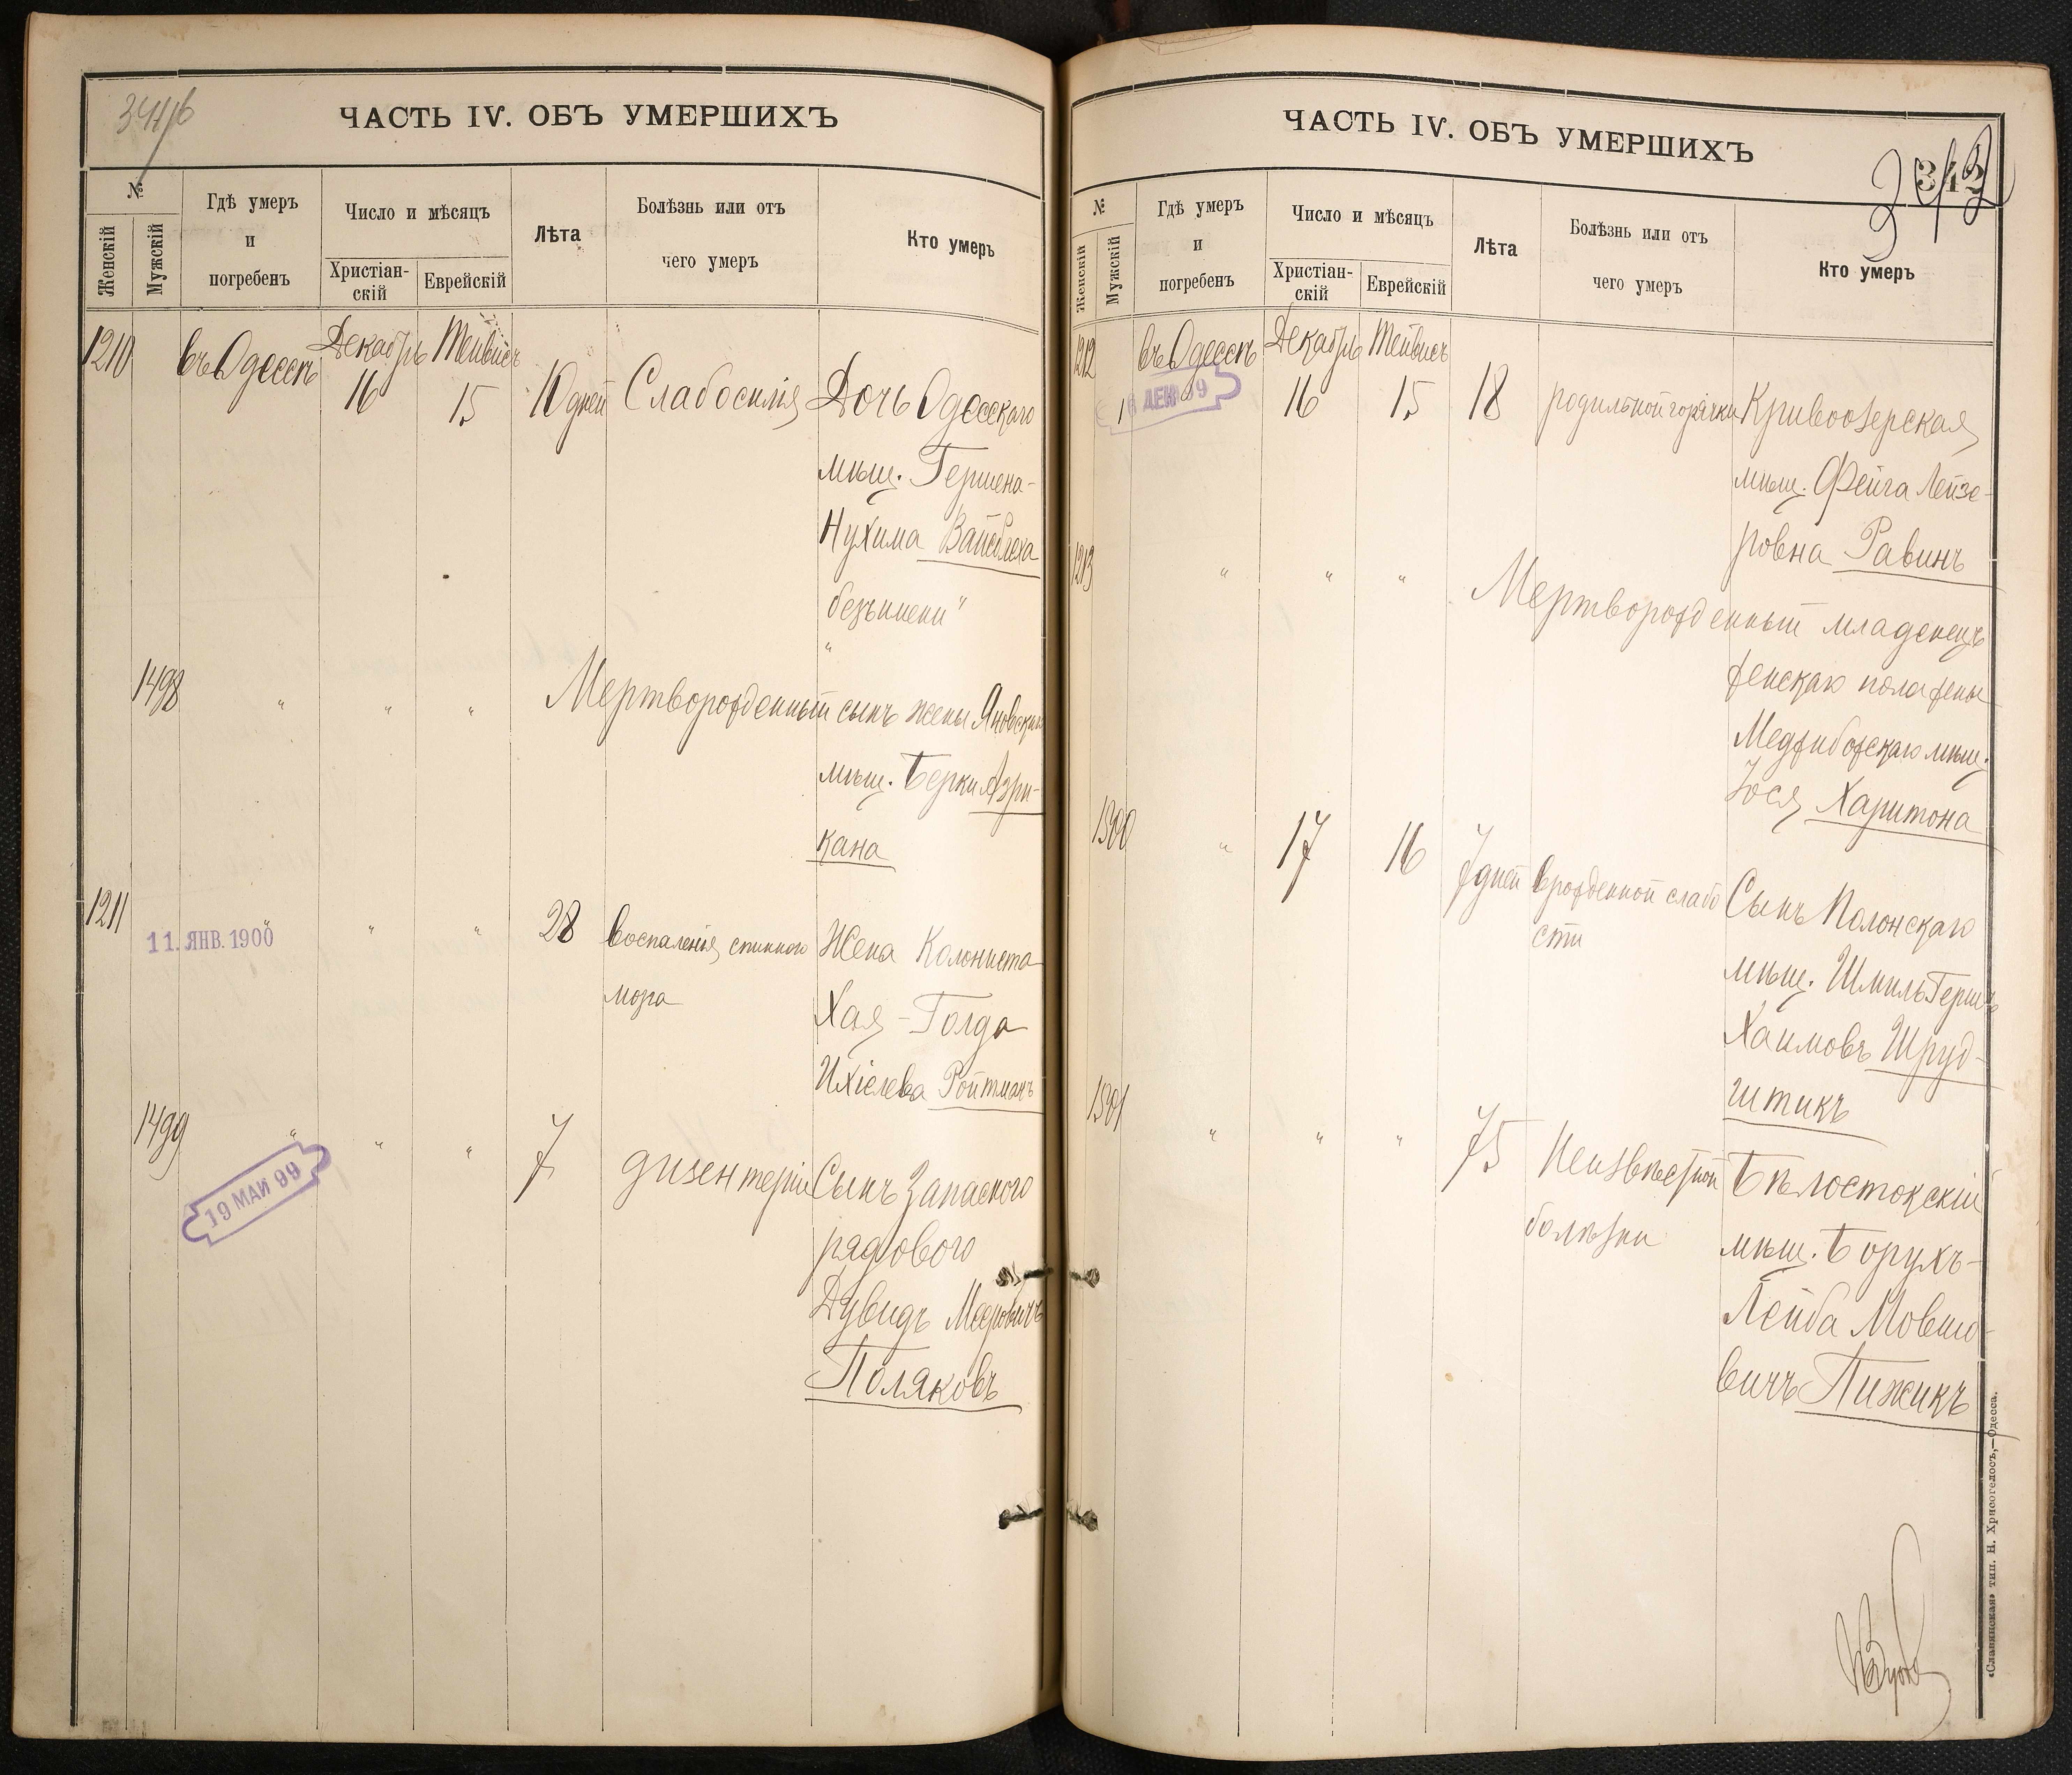 341/б
ЧАСТЬ IV. ОБЪ УМЕРШИХЪ
№
Женскій
Мужскій
Гдѣ умеръ
и
погребенъ
Число и мѣсяцъ
Христіан-
скій
Еврейскій
Лѣта
Болѣзнь или отъ
чего умеръ
Кто умеръ
1210
въ Одессѣ
Декабрь
16
Тейвисъ
15
10 дней
Слабосилія
Дочь Одесскаго
мѣщ. Гершена-
Нухима
безъ имени"
1498
"
"
"
Мертворожденный сынъ жены Яновскаго
мѣщ. Берки Азри-
кана
1211
"
11. ЯНВ. 1900
"
"
28
Воспаленія спинного
мозга
Жена Колониста
Хая-Голда
Ихіелева Ройтманъ
1499
"
19 МАЙ 99
"
"
7
дизентеріи
Сынъ Запасного
рядового
Дувидъ Мееровичъ
Поляковъ
ЧАСТЬ IV. ОБЪ УМЕРШИХЪ
342
342
№
Женскій
Мужскій
Гдѣ умеръ
и
погребенъ
Число и мѣсяцъ
Христіан-
скій
Еврейскій
Лѣта
Болѣзнь или отъ
чего умеръ
Кто умеръ
1212
въ Одессѣ
ДЕК 99
Декабрь
16
Тейвисъ
15
18
родильной горячки
Кривоозерская
мѣщ. Фейга Лейзе-
ровна Равинъ
1213
"
"
"
Мертворожденный младенецъ
женскаго пола жены
Меджибожскаго мѣщ.
Іося Харитона
1500
"
17
16
7 дней
Врожденной слабо
сти
Сынъ Полонскаго
мѣщ. Шмиль Гершъ
Хаимовъ Шруд-
штикъ
1501
"
"
"
75
Неизвѣстной
болѣзни
Бѣлостокскій
мѣщ. Борухъ-
Лейба Мовшо-
вичъ Пижикъ
«Славянская» тип. Н. Хрисогелосъ,—Одесса.